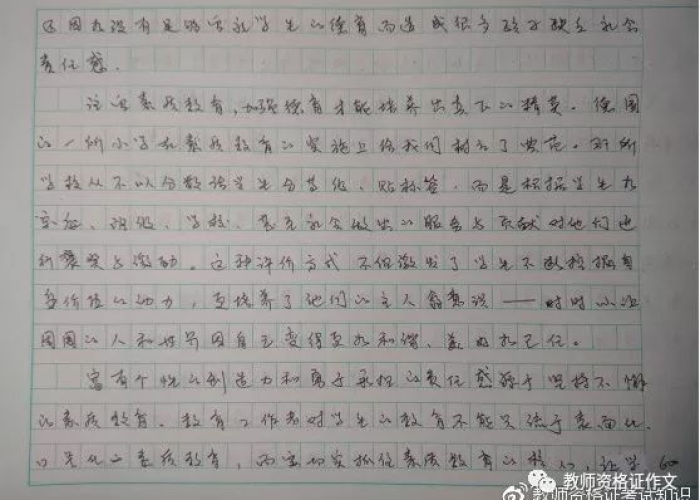 还因为没有足够重视学生的德育而造成很多孩子缺乏社会
责任感.
注重素质教育,加强德育才能培养出真正的精英。德国
的一所小学在素质教育的实施上给我们树立了典范。那所
学校从不以分数将学生分等级、贴标签,而是根据学生为
家庭、班级、学校、甚至社会做出的服务与贡献对他们进
行褒奖与激励。这种评价方式不但激发了学生不断挖掘自
身价值的动力,更培养了他们的主人翁意识——时时以让
周围的人和世界因自己变得更加和谐、美好为己任。
富有个性的创造力和勇于承担的责任感源于坚持不懈
的素质教育。教育工作者对学生的教育不能只流于表面化.
口号化的素质教育,而要切实抓住素质教育的核心,让学
教师资格证作文
@教师资格证考试知识
60